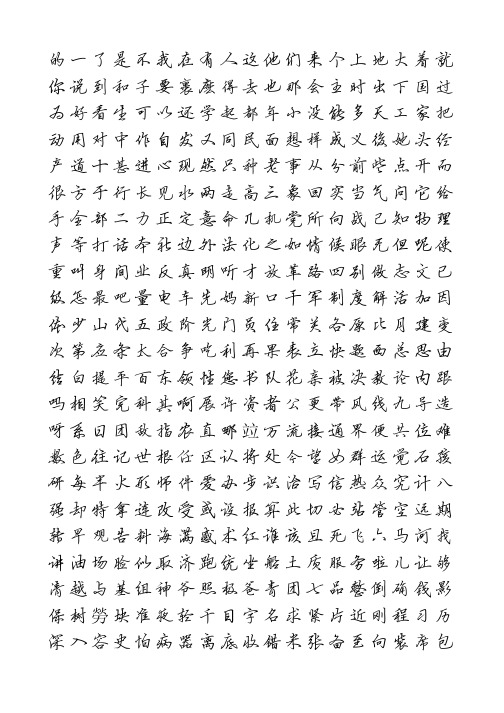 的一了是不我在有人这他们来个上地大着就
你说到和子要里么得去也那会主时出下国过
为好看生可以还学起都年小没能多天工家把
动用对中作自发又同民面想样成义后她头经
产道十甚进心现然只种老事从分前些点开而
很方于行长见水两走高三象回实当气问它给
手全部二力正定意命几机党所向战己知物理
声等打话本社边外法化之如情候眼无但呢使
重叫身间业反真明听才放革路四别做志文已
级怎最吧量电车先妈新口干军制度解活加因
依少山代五政阶光门员住常关各原比月建变
次第应条太合争吃利再果表立快题西总思由
结白提平百东领性您书队花亲被决教论内跟
吗相笑完科其啊展许资者公更带风线九导造
呀系日团敌指农直哪站万流接通界便共位难
数色往记世根任区认将处今望女群运觉石孩
研每半火形师件爱办步识治写信热众究计八
强却特拿连改受或设报算此切女站管空远期
转早观告料海满感术红谁该且死飞六马河找
讲油场脸似取济跑统坐船土质服务啦儿让够
清越与基组神爷照极爸青团七品整倒确钱影
保树劳块准夜轻千目字名求紧片近刚程习历
深入容史怕病器离底收错米张备至向装席包